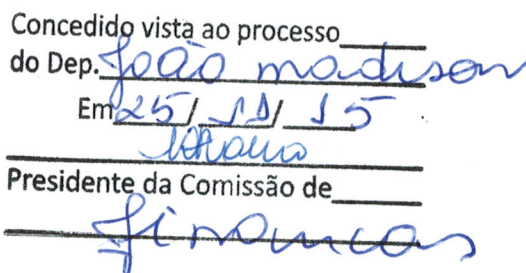 Concedido vista ao processo
do Dep. João madison
Em 25/11/15
Presidente da Comissão de
finanças